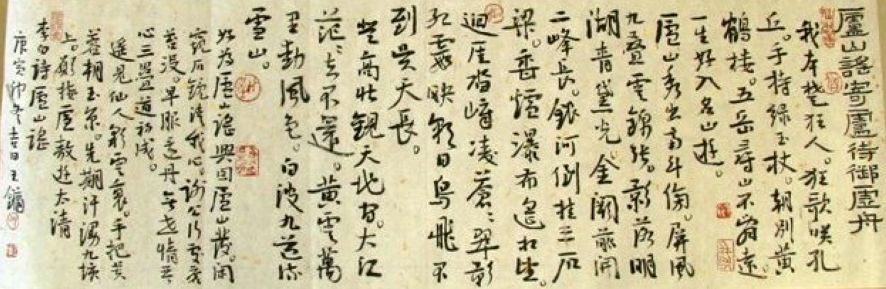 廬山謠寄廬侍御廬舟
我本楚狂人。狂歌笑孔
丘。手持綠玉杖。朝別黃
鶴樓。五岳尋山不辭遠。
一生好入名山遊。
廬山秀出南斗傍。屏風
九疊雲錦張。影落明
湖青黛光。金闕前開
二峰長。銀河倒挂三石
梁。香爐瀑布遙相望。
迴崖沓嶂凌蒼々。翠影
紅霞映朝日鳥飛不
到吳天長。
登高壯觀天地間。大江
茫々去不還。黃雲萬
里動風色。白波九道流
雪山。
好為廬山謠興因廬山發。閑
窺石鏡清我心。謝公行處蒼
苔沒。早服還丹無世情琴
心三疊道初成。
遙見仙人彩雲裏。手把芙
蓉朝玉京。先期汗漫九垓
上。願接廬敖遊太清
李白詩廬山謠
庚寅卯冬吉日王鏞